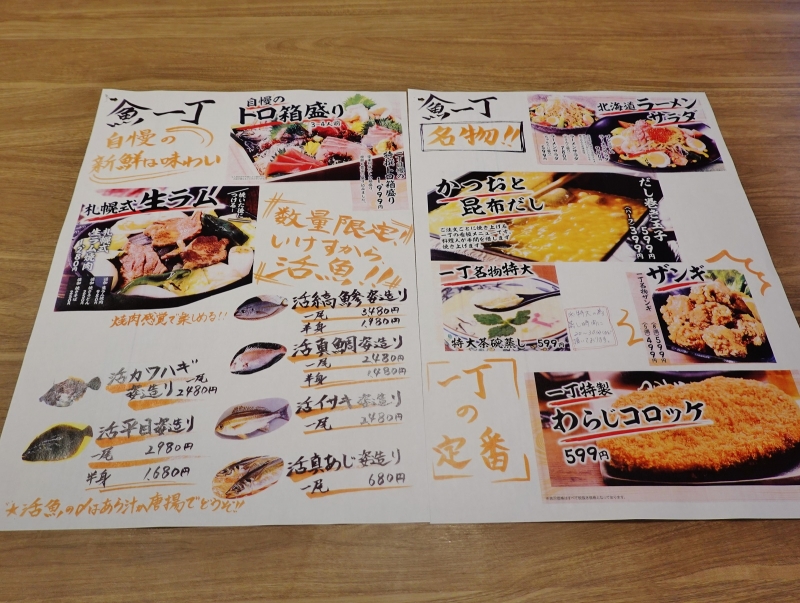 魚一丁
自慢の
新鮮な味わい
自慢の
トロ箱盛り
3-4人前
札幌式生ラム
焼肉感覚で楽しめる!!
数量限定
いけすから
活魚!!
活縞鯵姿造り
一尾 3480円
半身 1,980円
活真鯛姿造り
一尾 2480円
半身 1,480円
活カワハギ
姿造り 一尾 2480円
活イサキ姿造り
一尾 2480円
活平目姿造り
一尾 2980円
半身 1,680円
活真あじ姿造り
一尾 680円
★活魚のアラはあら汁か唐揚でどうぞ!!
魚一丁
名物!!
北海道ラーメン
サラダ
かつおと
昆布だし
だし巻き玉子
599円
399円
一丁名物特大
特大茶碗蒸し 599円
ザンギ
一丁名物ザンギ
499円
一丁の定番
一丁特製
わらじコロッケ
599円